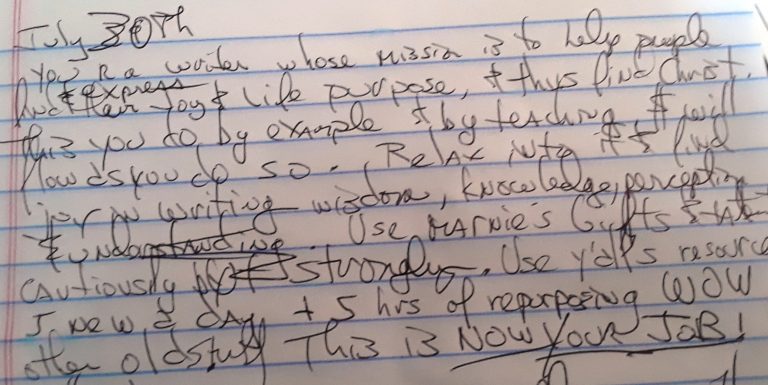 July 30th
You R a writer whose mission is to help people
find & express their joy & life purpose, & thus find Christ.
This you do by example & by teaching, & will
flow as you do so. Relax into it & find
joy in writing wisdom, knowledge, perception
& understanding. Use Marnie's Gifts &
cautiously strongly. Use y'all's resource
1 new & day + 5 hrs of repurposing WOW
other old stuff This is NOW YOUR JOB!